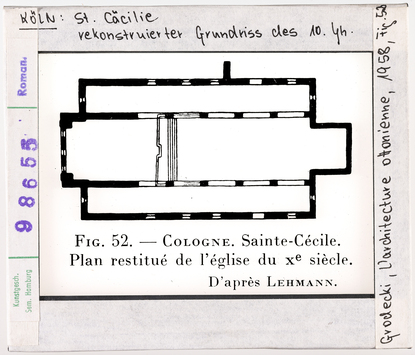 KÖLN: St. Cäcilie
rekonstruierter Grundriss des 10. Jh.
FIG. 52. — COLOGNE. Sainte-Cécile.
Plan restitué de l'église du Xᵉ siècle.
D'après LEHMANN.
Roman.
98655
Kunstgesch.
Sem. Hamburg
Grodecki, L'architecture ottonienne, 1958, fig. 52